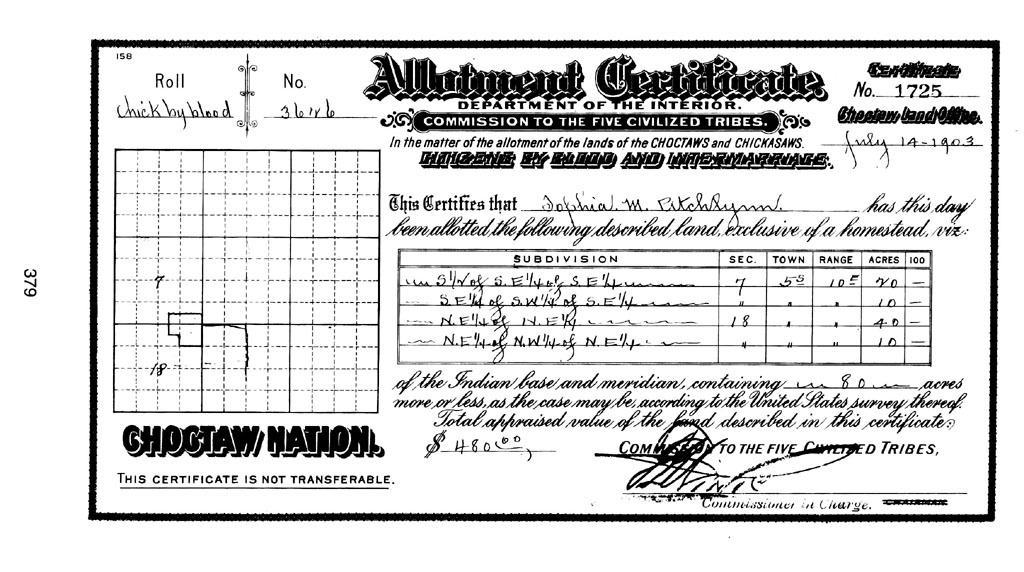 158
Roll No.
Chick by blood 3626
Allotment Certificate.
DEPARTMENT OF THE INTERIOR.
COMMISSION TO THE FIVE CIVILIZED TRIBES.
In the matter of the allotment of the lands of the CHOCTAWS and CHICKASAWS.
CITIZENS BY BLOOD AND INTERMARRIAGE.
Certificate
No. 1725
Choctaw Land Office.
July 14-1903
7
18
CHOCTAW NATION.
THIS CERTIFICATE IS NOT TRANSFERABLE.
This Certifies that Sophia M. Pitchlynn has this day
been allotted the following described land, exclusive of a homestead, viz:
SUBDIVISION SEC. TOWN RANGE ACRES 100
S 1/2 of S.E 1/4 of S.E 1/4 7 5S 10E 20 —
S.E 1/4 of S.W 1/4 of S.E 1/4 " " " 10 —
N.E 1/4 of N.E 1/4 18 " " 40 —
N.E 1/4 of N.W 1/4 of N.E 1/4 " " " 10 —
of the Indian base and meridian, containing 80 acres
more or less, as the case may be, according to the United States survey thereof.
Total appraised value of the land described in this certificate:
$ 480.00,
COMMISSION TO THE FIVE CIVILIZED TRIBES,
Commissioner in Charge. CHAIRMAN
379